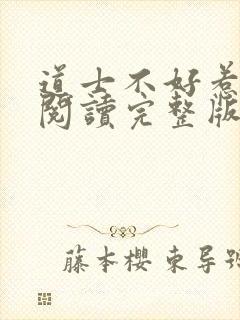 道士不好惹
閱讀完整版
藤本樱 東导